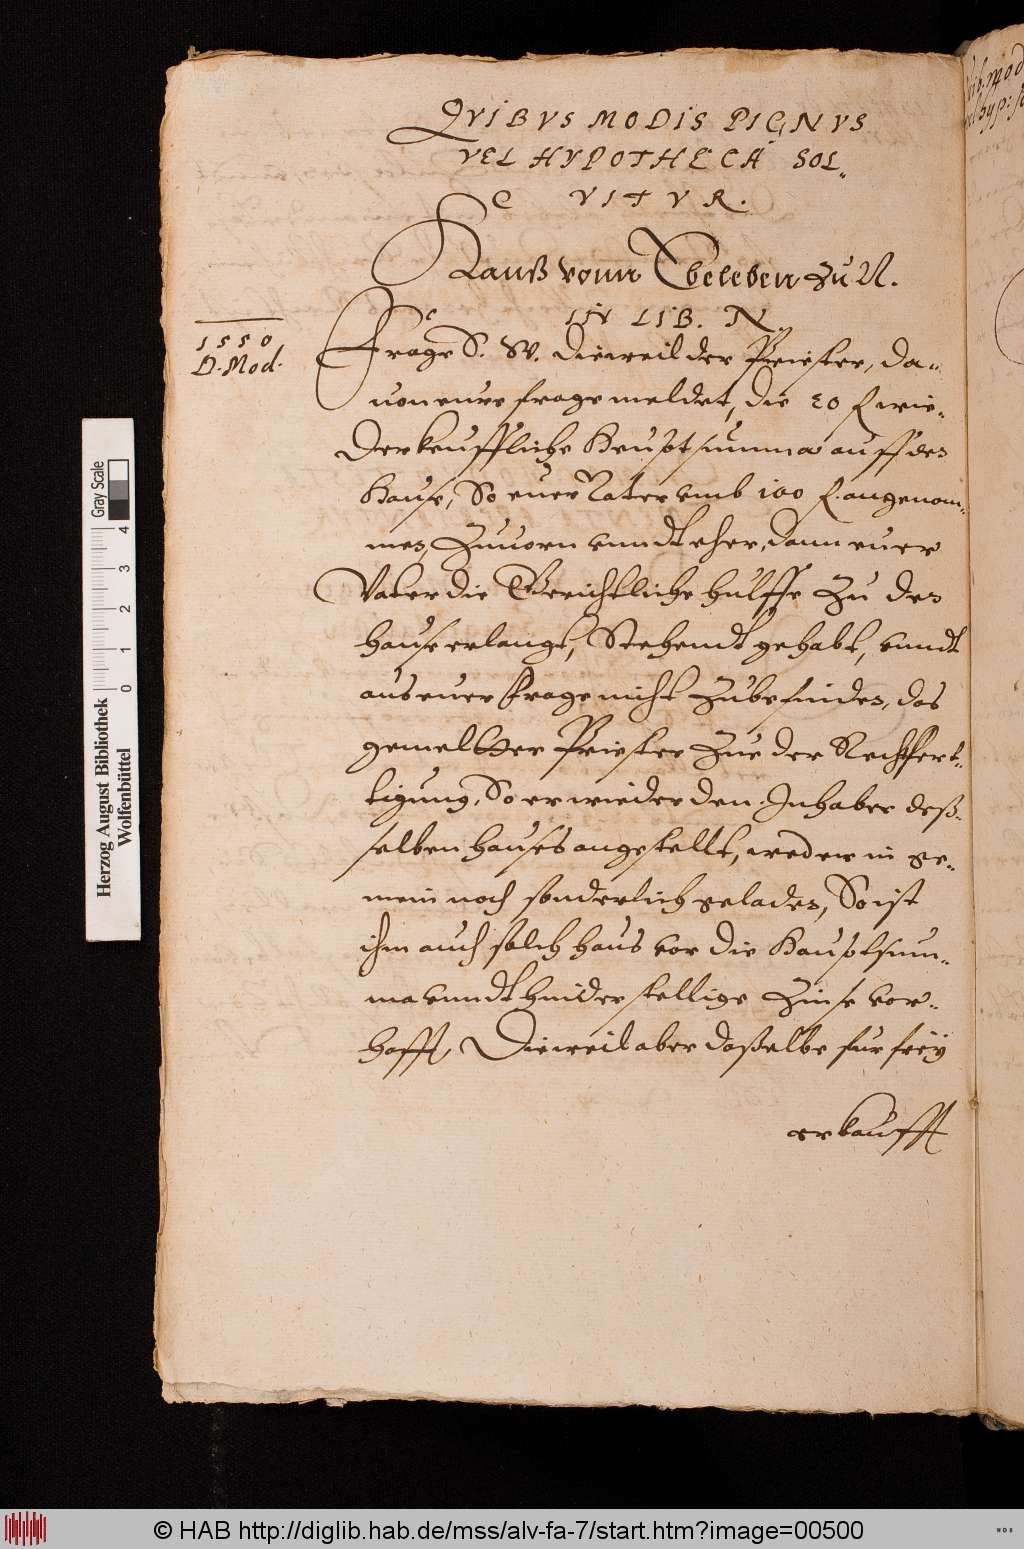 QVIBVS MODIS PIGNVS
VEL HYPOTHECA SOL-
VITVR.
Hanß vonn Ebeleben zu N.
IN LIB. N.
1550
D. Mod.
Frage S. W. Dieweil der Priester, da-
uon eure frage meldet, die 20 f wie-
derkeuffliche Heuptsumma auff des
Hause, So euer Vater vmb 100 f. angenom-
men, Zuuorn vnndt eher, dann euer
Vater die Gerichtliche hulffe Zu dem
hause erlangt, Stehendt gehabt, vnndt
aus euer frage nicht Zubefinden, das
gemelter Priester Zue der Rechtfert-
tigung, So er wieder den Inhaber deß-
selben hauses angestellt, weder in ge-
mein noch sonderlich geladen, So ist
ihm auch solch haus vor die Hauptsum-
ma vnndt hinderstellige Zinse vor-
hafft, Dieweil aber daßelbe fur frey
erkaufft
Herzog August Bibliothek
Wolfenbüttel
Gray Scale
0 1 2 3 4
© HAB http://diglib.hab.de/mss/alv-fa-7/start.htm?image=00500